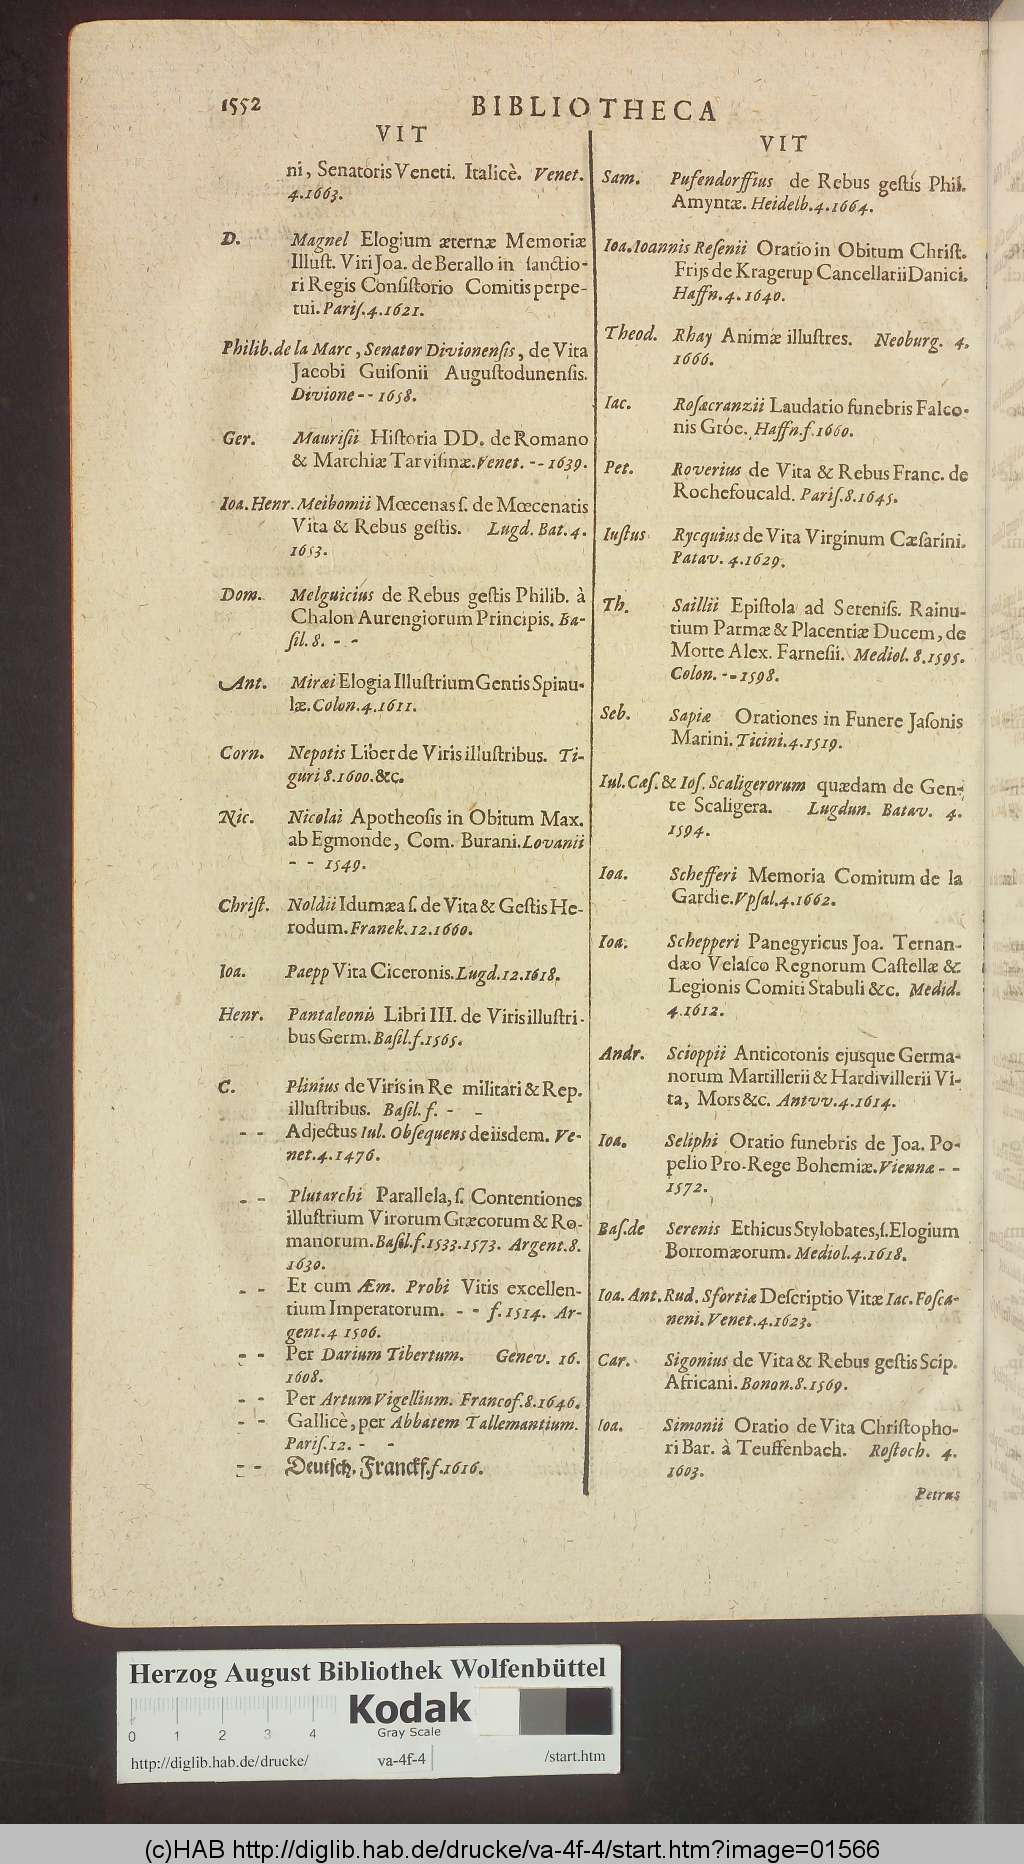 1552 BIBLIOTHECA
VIT
ni, Senatoris Veneti. Italicè. Venet.
4.1663.
D. Magnel Elogium æternæ Memoriæ
Illuſt. Viri Joa. de Berallo in ſanctio-
ri Regis Conſiſtorio Comitis perpe-
tui. Pariſ.4.1621.
Philib. de la Marc, Senator Divionenſis, de Vita
Jacobi Guiſonii Auguſtodunenſis.
Divione -- 1658.
Ger. Mauriſii Hiſtoria DD. de Romano
& Marchiæ Tarviſinæ. Venet. -- 1639.
Ioa. Henr. Meibomii Mœcenas ſ. de Mœcenatis
Vita & Rebus geſtis. Lugd. Bat. 4.
1653.
Dom. Melguicius de Rebus geſtis Philib. à
Chalon Aurengiorum Principis. Ba-
ſil. 8. - -
Ant. Miræi Elogia Illuſtrium Gentis Spinu-
læ. Colon.4.1611.
Corn. Nepotis Liber de Viris illuſtribus. Ti-
guri 8.1600.&c.
Nic. Nicolai Apotheoſis in Obitum Max.
ab Egmonde, Com. Burani. Lovanii
- - 1549.
Chriſt. Noldii Idumæa ſ. de Vita & Geſtis He-
rodum. Franek.12.1660.
Ioa. Paepp Vita Ciceronis. Lugd.12.1618.
Henr. Pantaleonis Libri III. de Viris illuſtri-
bus Germ. Baſil.f.1565.
C. Plinius de Viris in Re militari & Rep.
illuſtribus. Baſil. f. - -
- - Adjectus Iul. Obſequens de iisdem. Ve-
net.4.1476.
- - Plutarchi Parallela, ſ. Contentiones
illuſtrium Virorum Græcorum & Ro-
manorum. Baſil.f.1533.1573. Argent.8.
1630.
- - Et cum Æm. Probi Vitis excellen-
tium Imperatorum. - - f.1514. Ar-
gent.4 1506.
- - Per Darium Tibertum. Genev. 16.
1608.
- - Per Artum Vigellium. Francof.8.1646.
- - Gallicè, per Abbatem Tallemantium.
Pariſ.12. - -
- - Deutſch, Franckf. f.1616.
VIT
Sam. Pufendorffius de Rebus geſtis Phil.
Amyntæ. Heidelb.4.1664.
Ioa. Ioannis Reſenii Oratio in Obitum Chriſt.
Frijs de Kragerup Cancellarii Danici.
Haffn.4.1640.
Theod. Rhay Animæ illuſtres. Neoburg. 4.
1666.
Iac. Roſæcranzii Laudatio funebris Falco-
nis Gróe. Haffn.f.1660.
Pet. Roverius de Vita & Rebus Franc. de
Rochefoucald. Pariſ.8.1645.
Iuſtus Rycquius de Vita Virginum Cæſarini.
Patav. 4.1629.
Th. Saillii Epiſtola ad Sereniſs. Rainu-
tium Parmæ & Placentiæ Ducem, de
Morte Alex. Farneſii. Mediol. 8.1595.
Colon. -- 1598.
Seb. Sapiæ Orationes in Funere Jaſonis
Marini. Ticini.4.1519.
Iul. Cæſ. & Ioſ. Scaligerorum quædam de Gen-
te Scaligera. Lugdun. Batav. 4.
1594.
Ioa. Schefferi Memoria Comitum de la
Gardie. Vpſal.4.1662.
Ioa. Schepperi Panegyricus Joa. Ternan-
dæo Velaſco Regnorum Caſtellæ &
Legionis Comiti Stabuli &c. Medid.
4.1612.
Andr. Scioppii Anticotonis ejusque Germa-
norum Martillerii & Hardivillerii Vi-
ta, Mors &c. Antvv.4.1614.
Ioa. Seliphi Oratio funebris de Joa. Po-
pelio Pro-Rege Bohemiæ. Viennæ - -
1572.
Baſ. de Serenis Ethicus Stylobates, ſ. Elogium
Borromæorum. Mediol.4.1618.
Ioa. Ant. Rud. Sfortiæ Deſcriptio Vitæ Iac. Foſca-
neni. Venet.4.1623.
Car. Sigonius de Vita & Rebus geſtis Scip.
Africani. Bonon.8.1569.
Ioa. Simonii Oratio de Vita Chriſtopho-
ri Bar. à Teuffenbach. Roſtoch. 4.
1603.
Petrus
Herzog August Bibliothek Wolfenbüttel
Kodak
Gray Scale
0 1 2 3 4
http://diglib.hab.de/drucke/ va-4f-4 /start.htm
(c)HAB http://diglib.hab.de/drucke/va-4f-4/start.htm?image=01566